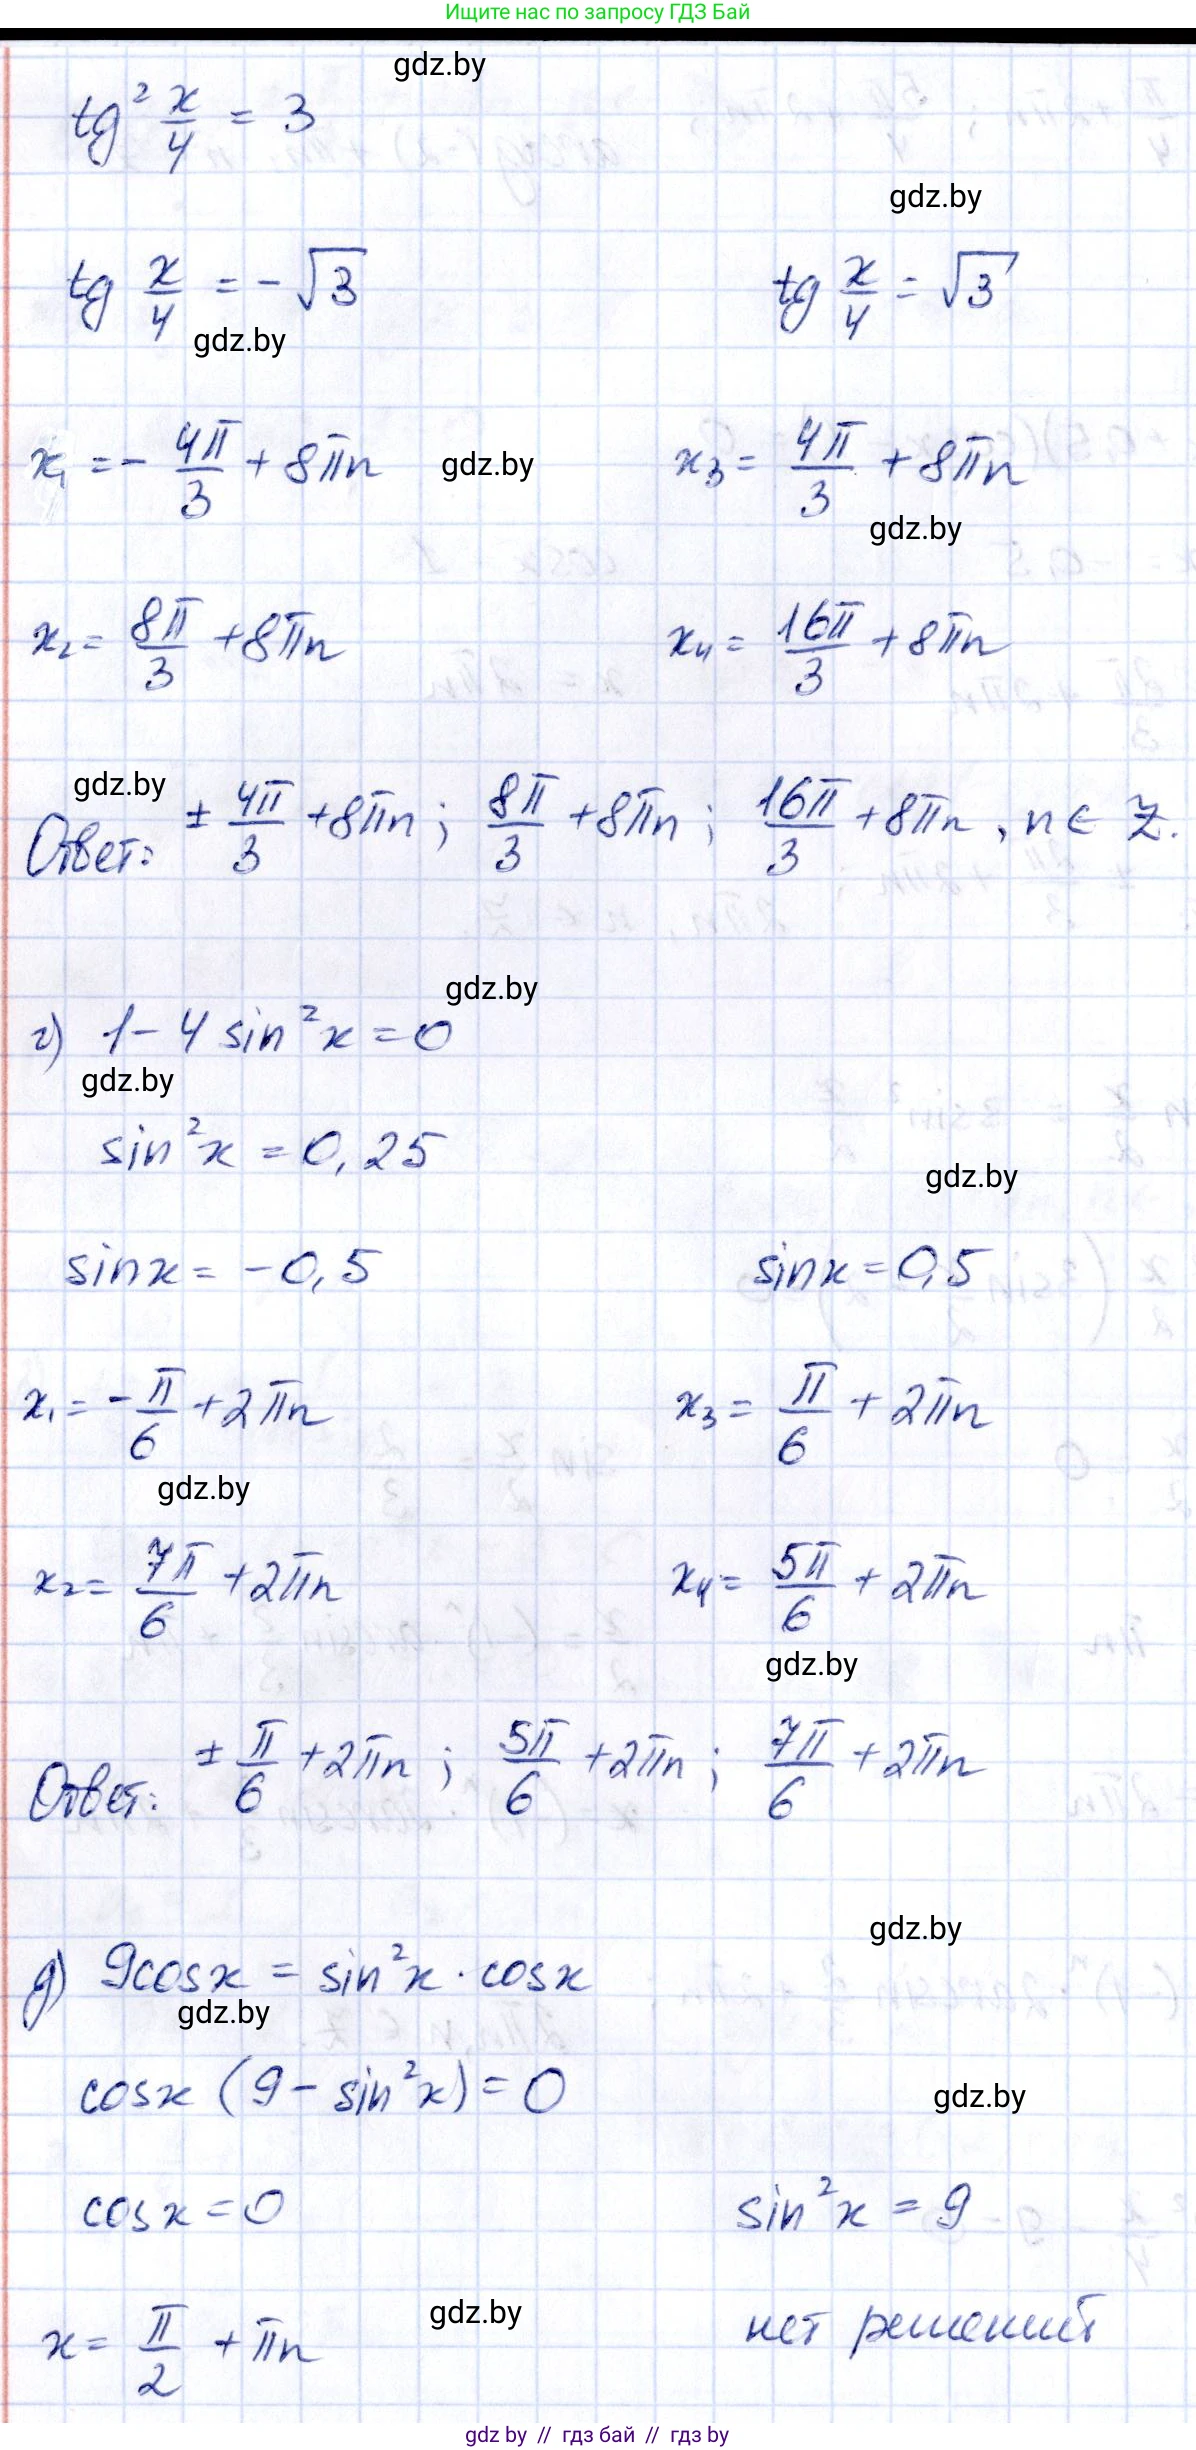 Ищите нас по запросу ГДЗ Бай
gdz.by
tg² x/4 = 3
gdz.by
tg x/4 = -√3 tg x/4 = √3
gdz.by
x₁ = - 4π/3 + 8πn gdz.by x₃ = 4π/3 + 8πn
gdz.by
x₂ = 8π/3 + 8πn x₄ = 16π/3 + 8πn
gdz.by
Ответ: ± 4π/3 + 8πn ; 8π/3 + 8πn ; 16π/3 + 8πn , n ∈ Z.
gdz.by
г) 1 - 4 sin²x = 0
gdz.by
sin²x = 0,25
gdz.by
sinx = -0,5 sinx = 0,5
x₁ = - π/6 + 2πn x₃ = π/6 + 2πn
gdz.by
x₂ = 7π/6 + 2πn x₄ = 5π/6 + 2πn
gdz.by
Ответ: ± π/6 + 2πn ; 5π/6 + 2πn ; 7π/6 + 2πn
gdz.by
д) 9cosx = sin²x · cosx
gdz.by
cosx (9 - sin²x) = 0
gdz.by
cosx = 0 sin²x = 9
gdz.by
x = π/2 + πn нет решений
gdz by // гдз бай // гдз by